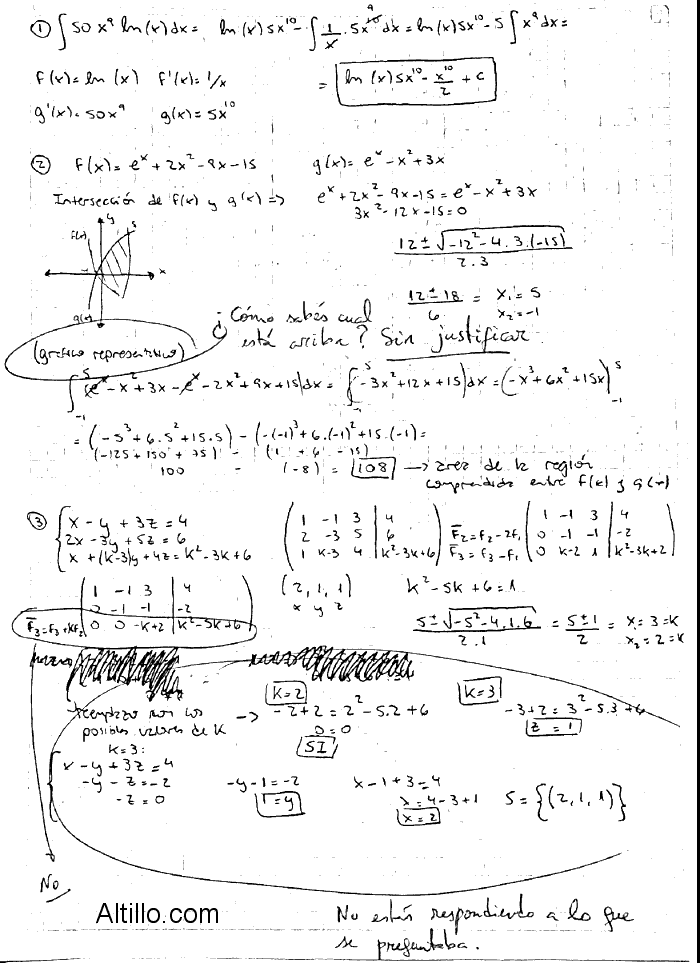 ① ∫ 50 x⁹ ln(x) dx = ln(x) 5x¹⁰ - ∫ 1/x · 5x¹⁰ ⁹ dx = ln(x) 5x¹⁰ - 5 ∫ x⁹ dx =
f(x) = ln(x) f'(x) = 1/x = ln(x) 5x¹⁰ - x¹⁰/2 + c
g'(x) = 50x⁹ g(x) = 5x¹⁰
② f(x) = eˣ + 2x² - 9x - 15 g(x) = eˣ - x² + 3x
Intersección de f(x) y g(x) => eˣ + 2x² - 9x - 15 = eˣ - x² + 3x
3x² - 12x - 15 = 0
y
f(x)
5
-1
x
g(x)
12 ± √-12² - 4.3.(-15) / 2.3
12 ± 18 / 6 = x₁ = 5
x₂ = -1
¿Cómo sabés cual
está arriba? Sin justificar
(gráfico representativo)
∫₋₁⁵ (eˣ - x² + 3x - eˣ - 2x² + 9x + 15) dx = ∫₋₁⁵ (-3x² + 12x + 15) dx = (-x³ + 6x² + 15x) |₋₁⁵
= (-5³ + 6.5² + 15.5) - (-(-1)³ + 6.(-1)² + 15.(-1)) =
(-125 + 150 + 75) - (1 + 6 - 15)
100 - (-8) = 108 → area de la región
comprendida entre f(x) y g(x)
③ { x - y + 3z = 4
2x - 3y + 5z = 6
x + (k-3)y + 4z = k² - 3k + 6
( 1 -1 3 | 4
2 -3 5 | 6
1 k-3 4 | k²-3k+6 )
F₂ = F₂ - 2F₁
F₃ = F₃ - F₁
( 1 -1 3 | 4
0 -1 -1 | -2
0 k-2 1 | k²-3k+2 )
( 1 -1 3 | 4
0 -1 -1 | -2
F₃ = F₃ + kF₂ 0 0 -k+2 | k²-5k+6 )
(2, 1, 1)
x y z
k² - 5k + 6 = 1
5 ± √-5² - 4.1.6 / 2.1 = 5 ± 1 / 2 = x = 3 = k
x₂ = 2 = k
reemplazo por los
posibles valores de k
→ k=2
-2+2 = 2² - 5.2 + 6
0 = 0
SI
k=3
-3+2 = 3² - 5.3 + 6
z = 1
k=3:
{ x - y + 3z = 4
-y - z = -2
-z = 0
-y - 1 = -2
1 = y
x - 1 + 3 = 4
x = 4 - 3 + 1
x = 2
S = {(2, 1, 1)}
No
Altillo.com
No estás respondiendo a lo que
se preguntaba.